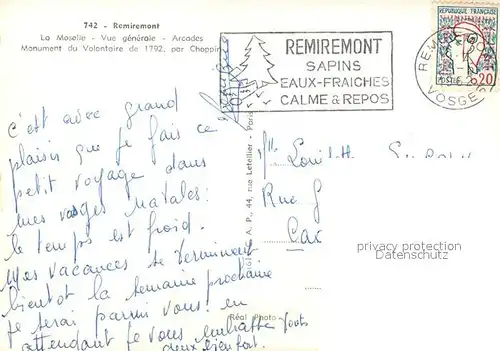 742 - Remiremont
La Moselle - Vue générale - Arcades
Monument du Volontaire de 1792, par Choppin
REMIREMONT
SAPINS
EAUX-FRAICHES
CALME & REPOS
REPUBLIQUE FRANÇAISE
POSTES
0,20
VOSGES
c'est avec grand
plaisir que je fais ce
petit voyage dans
mes vosges natales.
le temps est froid.
Mes vacances se terminent
bientot la semaine prochaine
je serai parmi vous. en
attendant je vous embrasse tous
deux bien fort.
A. P., 44, rue Letellier - Paris
Réal Photo
Mlle
Rue
privacy protection
Datenschutz